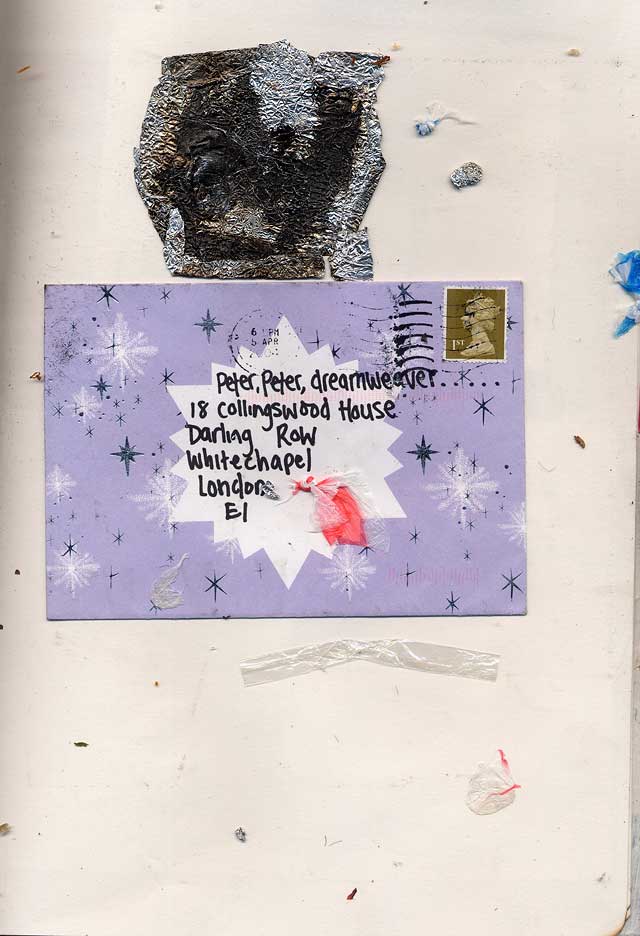 6 PM
5 APR
1ST
Peter, Peter, dreamweaver......
18 Collingswood House
Darling Row
Whitechapel
London
E1